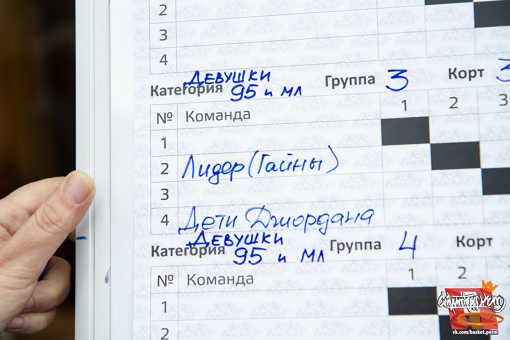 2
3
4
Категория ДЕВУШКИ 95 и мл Группа 3 Корт 3
№ Команда 1 2 3
1
2 Лидер (Гайны)
3
4 Дети Джордана
Категория ДЕВУШКИ 95 и мл Группа 4 Корт
№ Команда 1 2
1
2
vk.com/basket.perm